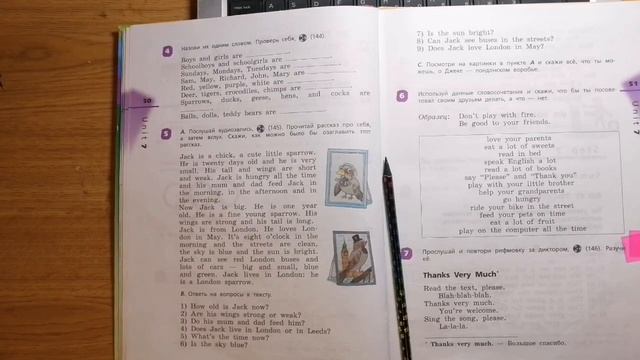 4
Назови их одним словом. Проверь себя, (144).
Boys and girls are
Schoolboys and schoolgirls are
Sundays, Mondays, Tuesdays are
Sam, May, Richard, John, Mary are
Red, yellow, purple, white are
Deer, tigers, crocodiles, chimps are
Sparrows, ducks, geese, hens, and cocks are
Balls, dolls, teddy bears are
50
Unit 7
5
А. Послушай аудиозапись, (145). Прочитай рассказ про себя,
а затем вслух. Скажи, как можно было бы озаглавить этот
рассказ.
Jack is a chick, a cute little sparrow.
He is twenty days old and he is very
small. His tail and wings are short
and weak. Jack is hungry all the time
and his mum and dad feed Jack in
the morning, in the afternoon and in
the evening.
Now Jack is big. He is one year
old. He is a fine young sparrow. His
wings are strong and his tail is long.
Jack is from London. He loves Lon-
don in May. It's eight o'clock in the
morning and the streets are clean,
the sky is blue and the sun is bright.
Jack can see red London buses and
lots of cars — big and small, blue
and green. Jack lives in London: he
is a London sparrow.
В. Ответь на вопросы к тексту.
1) How old is Jack now?
2) Are his wings strong or weak?
3) Do his mum and dad feed him?
4) Does Jack live in London or in Leeds?
5) What's the time now?
6) Is the sky blue?
7) Is the sun bright?
8) Can Jack see buses in the streets?
9) Does Jack love London in May?
С. Посмотри на картинки в пункте А и скажи всё, что ты мо-
жешь, о Джеке — лондонском воробье.
51
Unit 7
6
Используй данные словосочетания и скажи, что бы ты посове-
товал своим друзьям делать, а что — нет.
Образец: Don't play with fire.
Be good to your friends.
love your parents
eat a lot of sweets
read in bed
speak English a lot
read a lot of books
say "Please" and "Thank you"
play with your little brother
help your grandparents
go hungry
ride your bike in the street
feed your pets on time
eat a lot of fruit
play on the computer all the time
7
Прослушай и повтори рифмовку за диктором, (146). Разучи
её.
Thanks Very Much*
Read the text, please.
Blah-blah-blah.
Thanks very much.
You're welcome.
Sing the song, please.
La-la-la.
* Thanks very much. — Большое спасибо.